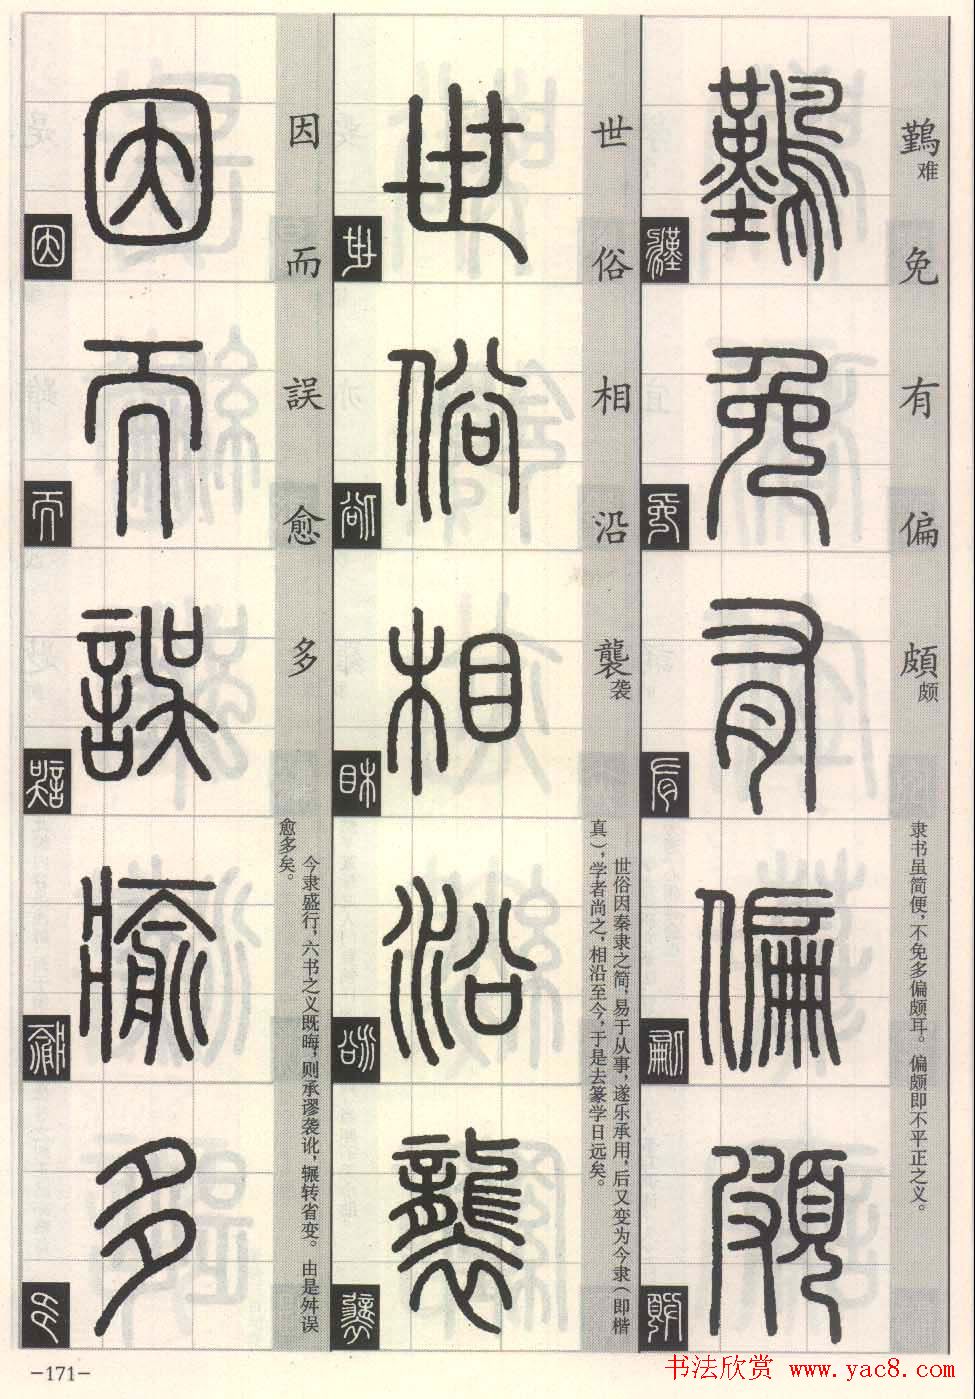 鷬难免有偏頗颇
隶书虽简便，不免多偏颇耳。偏颇即不平正之义。
世俗相沿襲袭
世俗因秦隶之简，易于从事，遂乐承用，后又变为今隶（即楷
真），学者尚之，相沿至今，于是去篆学日远矣。
因而誤愈多
今隶盛行，六书之义既晦，则承谬袭讹，辗转省变。由是舛误
愈多矣。
-171-
书法欣赏 www.yac8.com